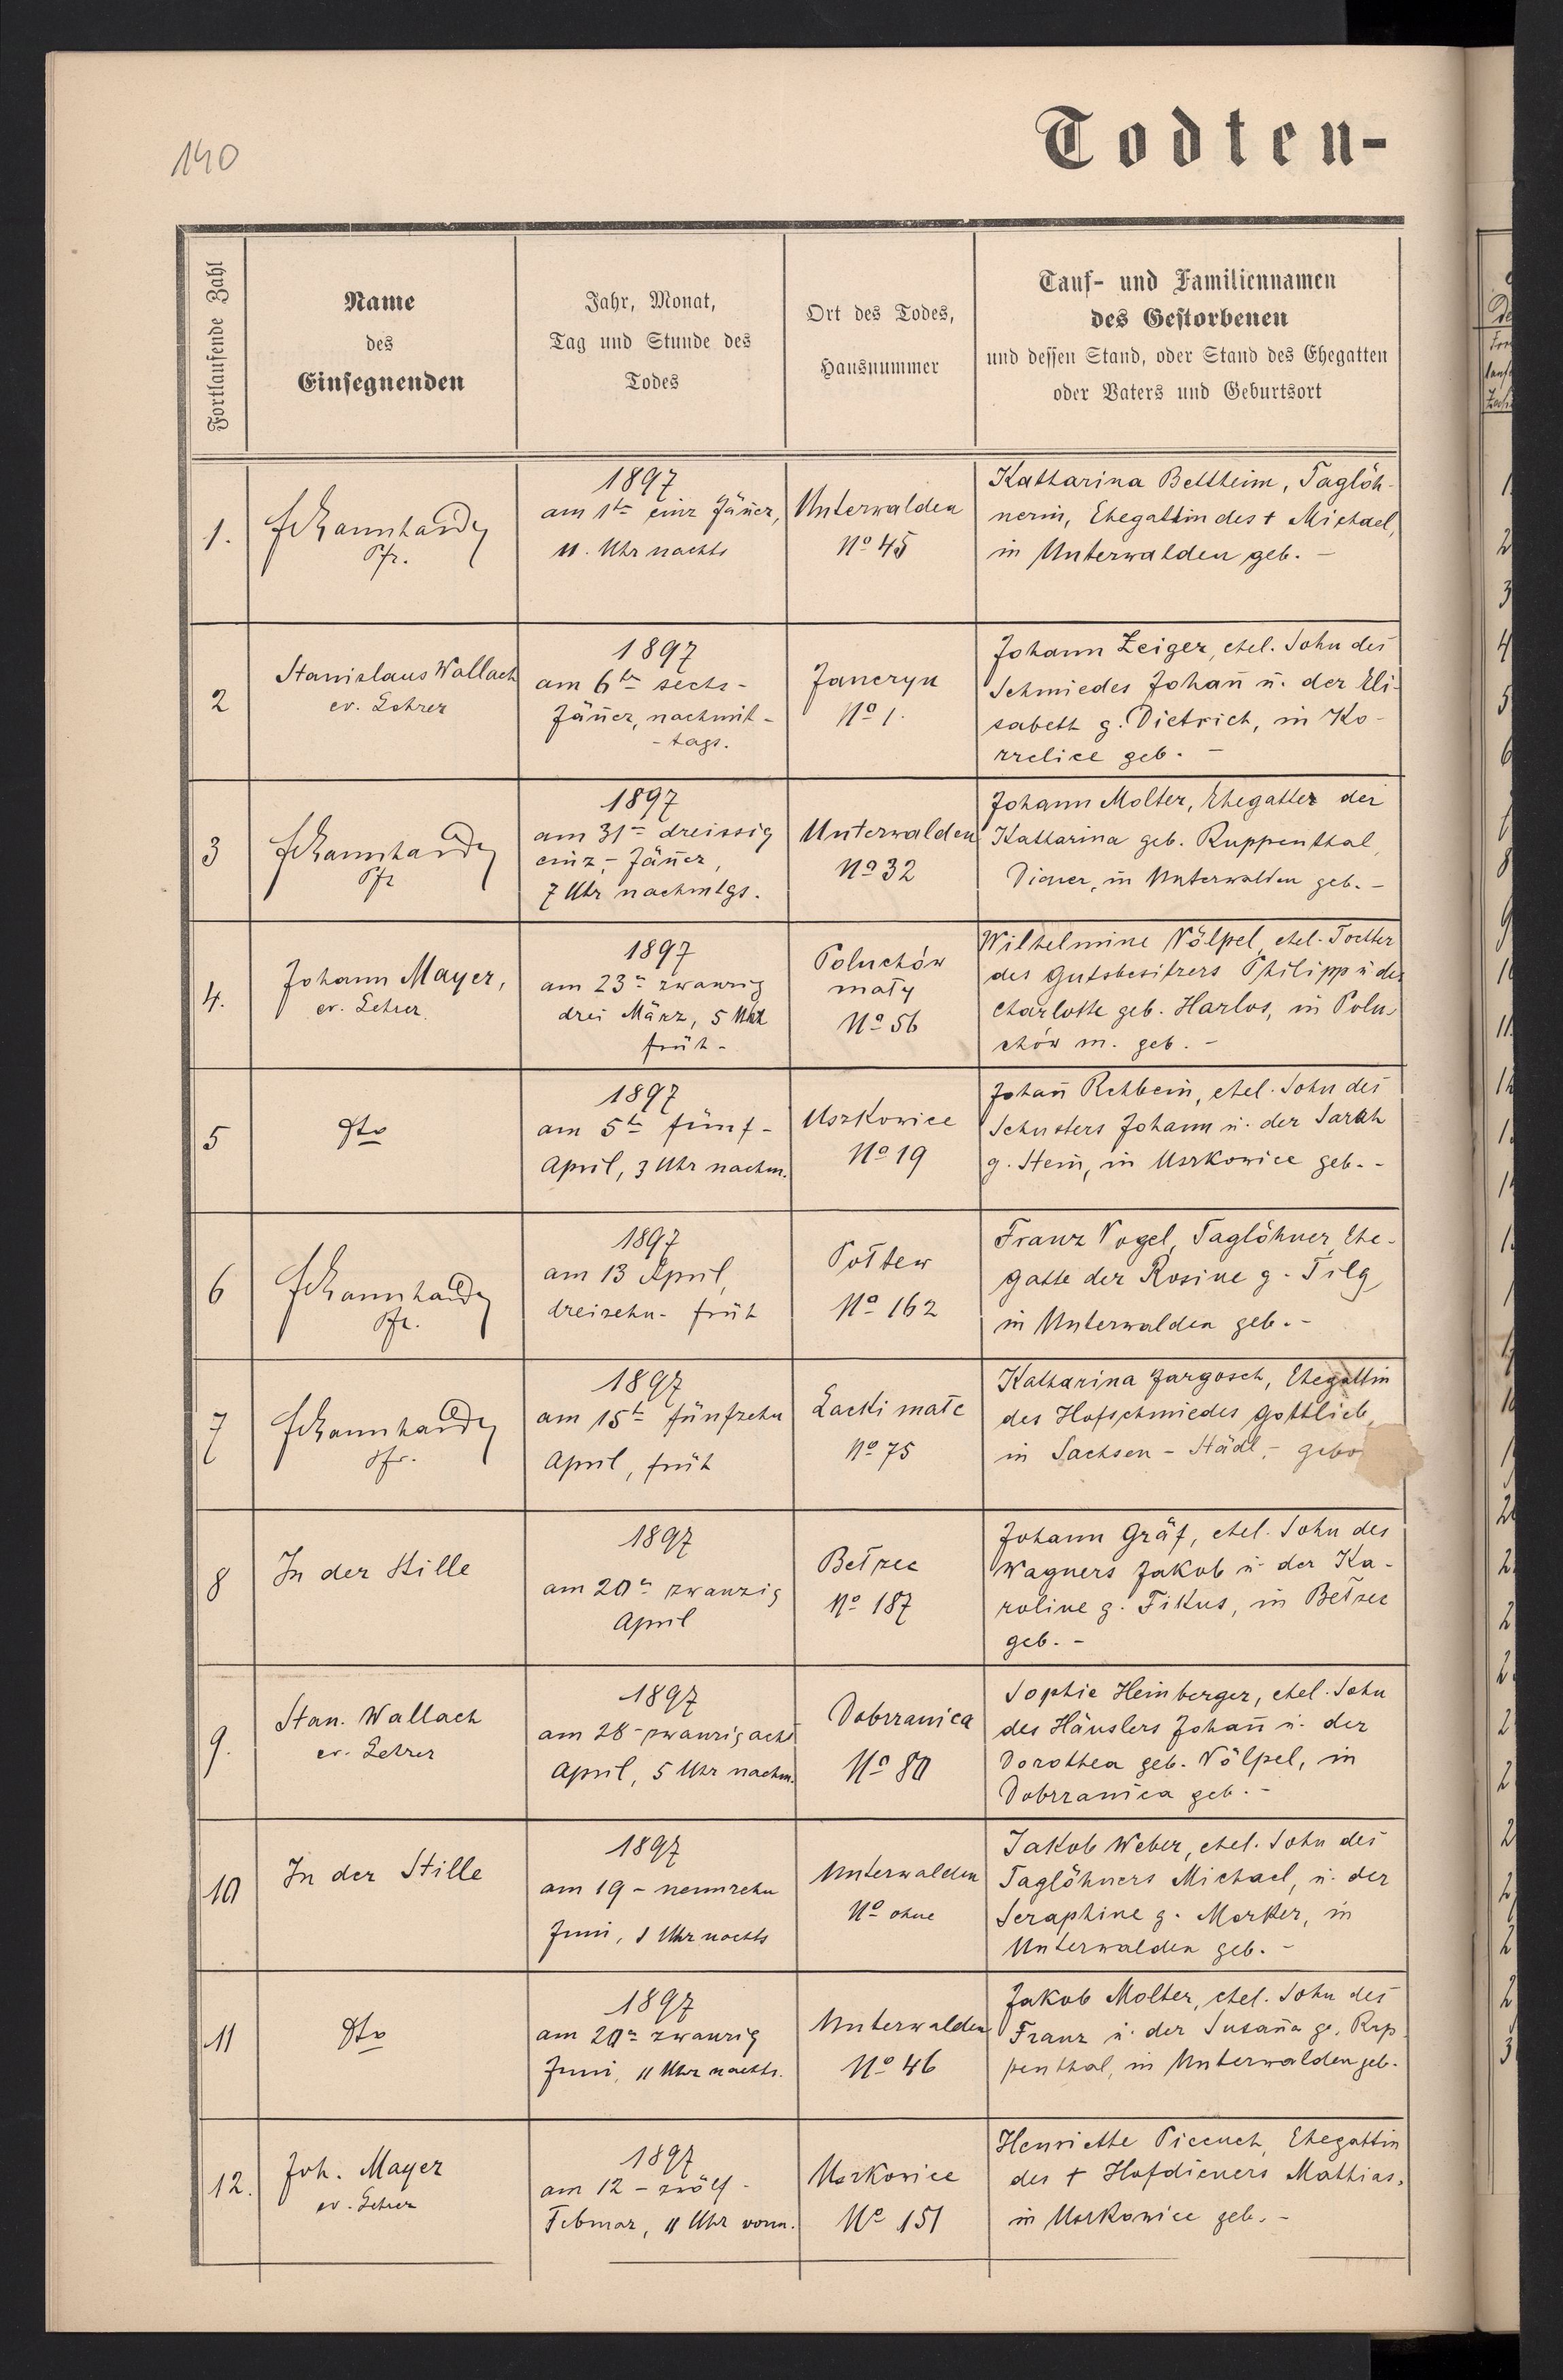 140
Todten-
Fortlaufende Zahl
Name
des
Einsegnenden
Jahr, Monat,
Tag und Stunde des
Todes
Ort des Todes,
Hausnummer
Tauf- und Familiennamen
des Gestorbenen
und dessen Stand, oder Stand des Ehegatten
oder Vaters und Geburtsort
1.
Pfr.
1897
am 1te einz Jäner,
11. Uhr nachts
Unterwalden
No 45
Katharina Bettheim, Taglöh-
nerin, Ehegattin des † Michael,
in Unterwalden geb. -
2
Stanislaus Wallach
ev. Lehrer
1897
am 6te sechs -
Jäner, nachmit -
- tags.
Janczyn
No 1.
Johann Zeiger, ehel. Sohn des
Schmiedes Johan u. der Eli-
sabeth g. Dietrich, in Ko-
rzelice geb. -
3
Pfr
1897
am 31te dreissig
einz - Jäner,
7 Uhr nachmtgs.
Unterwalden
No 32
Johann Molter, Ehegatter der
Katharina geb. Ruppenthal,
Diener, in Unterwalden geb. -
4.
Johann Mayer,
ev. Lehrer.
1897
am 23te zwanzig
drei März, 5 Uhr
früh -
Poluchów
mały
No 56
Wilhelmine Völpel, ehel. Tochter
des Gutsbesitzers Philipp u der
Charlotte geb. Harlos, in Polu-
chów m. geb. -
5
dto
1897
am 5te fünf -
April, 3 Uhr nachm.
Uszkowice
No 19
Johan Rehbein, ehel. Sohn des
Schusters Johann u. der Sarah
g. Stein, in Uszkowice geb. -
6
Pfr.
1897
am 13 April,
dreizehn - früh
Połtew
No 162
Franz Vogel, Taglöhner, Ehe-
gatte der Rosine g. Tilg
in Unterwalden geb. -
7
Pfr.
1897
am 15te fünfzehn
April, früh
Lacki małe
No 75
Katharina Jargosch, Ehegattin
des Hofschmiedes Gottlieb,
in Sachsen - Städl - gebo
8
In der Stille
1897
am 20te zwanzig
April
Bełzec
No 187
Johann Gräf, ehel. Sohn des
Wagners Jakob u. der Ka-
roline g. Fikus, in Bełzec
geb. -
9.
Stan. Wallach
ev. Lehrer
1897
am 28 - zwanzigacht
April, 5 Uhr nachm.
Dobrzanica
No 80
Sophie Heinberger, ehel. Sohn
des Häuslers Johan u. der
Dorothea geb. Völpel, in
Dobrzanica geb. -
10
In der Stille
1897
am 19 - neunzehn
Juni, 1 Uhr nachts
Unterwalden
No ohne
Jakob Weber, ehel. Sohn des
Taglöhners Michael, u. der
Seraphine g. Morker, in
Unterwalden geb. -
11
dto
1897
am 20te zwanzig
Juni, 11 Uhr nachts.
Unterwalden
No 46
Jakob Molter, ehel. Sohn des
Franz u. der Susana ge. Rup-
penthal, in Unterwalden geb.
12.
Joh. Mayer
ev. Lehrer
1897
am 12 - zwölf -
Februar, 11 Uhr vorm.
Uszkowice
No 151
Henriette Piecuch, Ehegattin
des † Hofdieners Mathias,
in Uszkowice geb. -